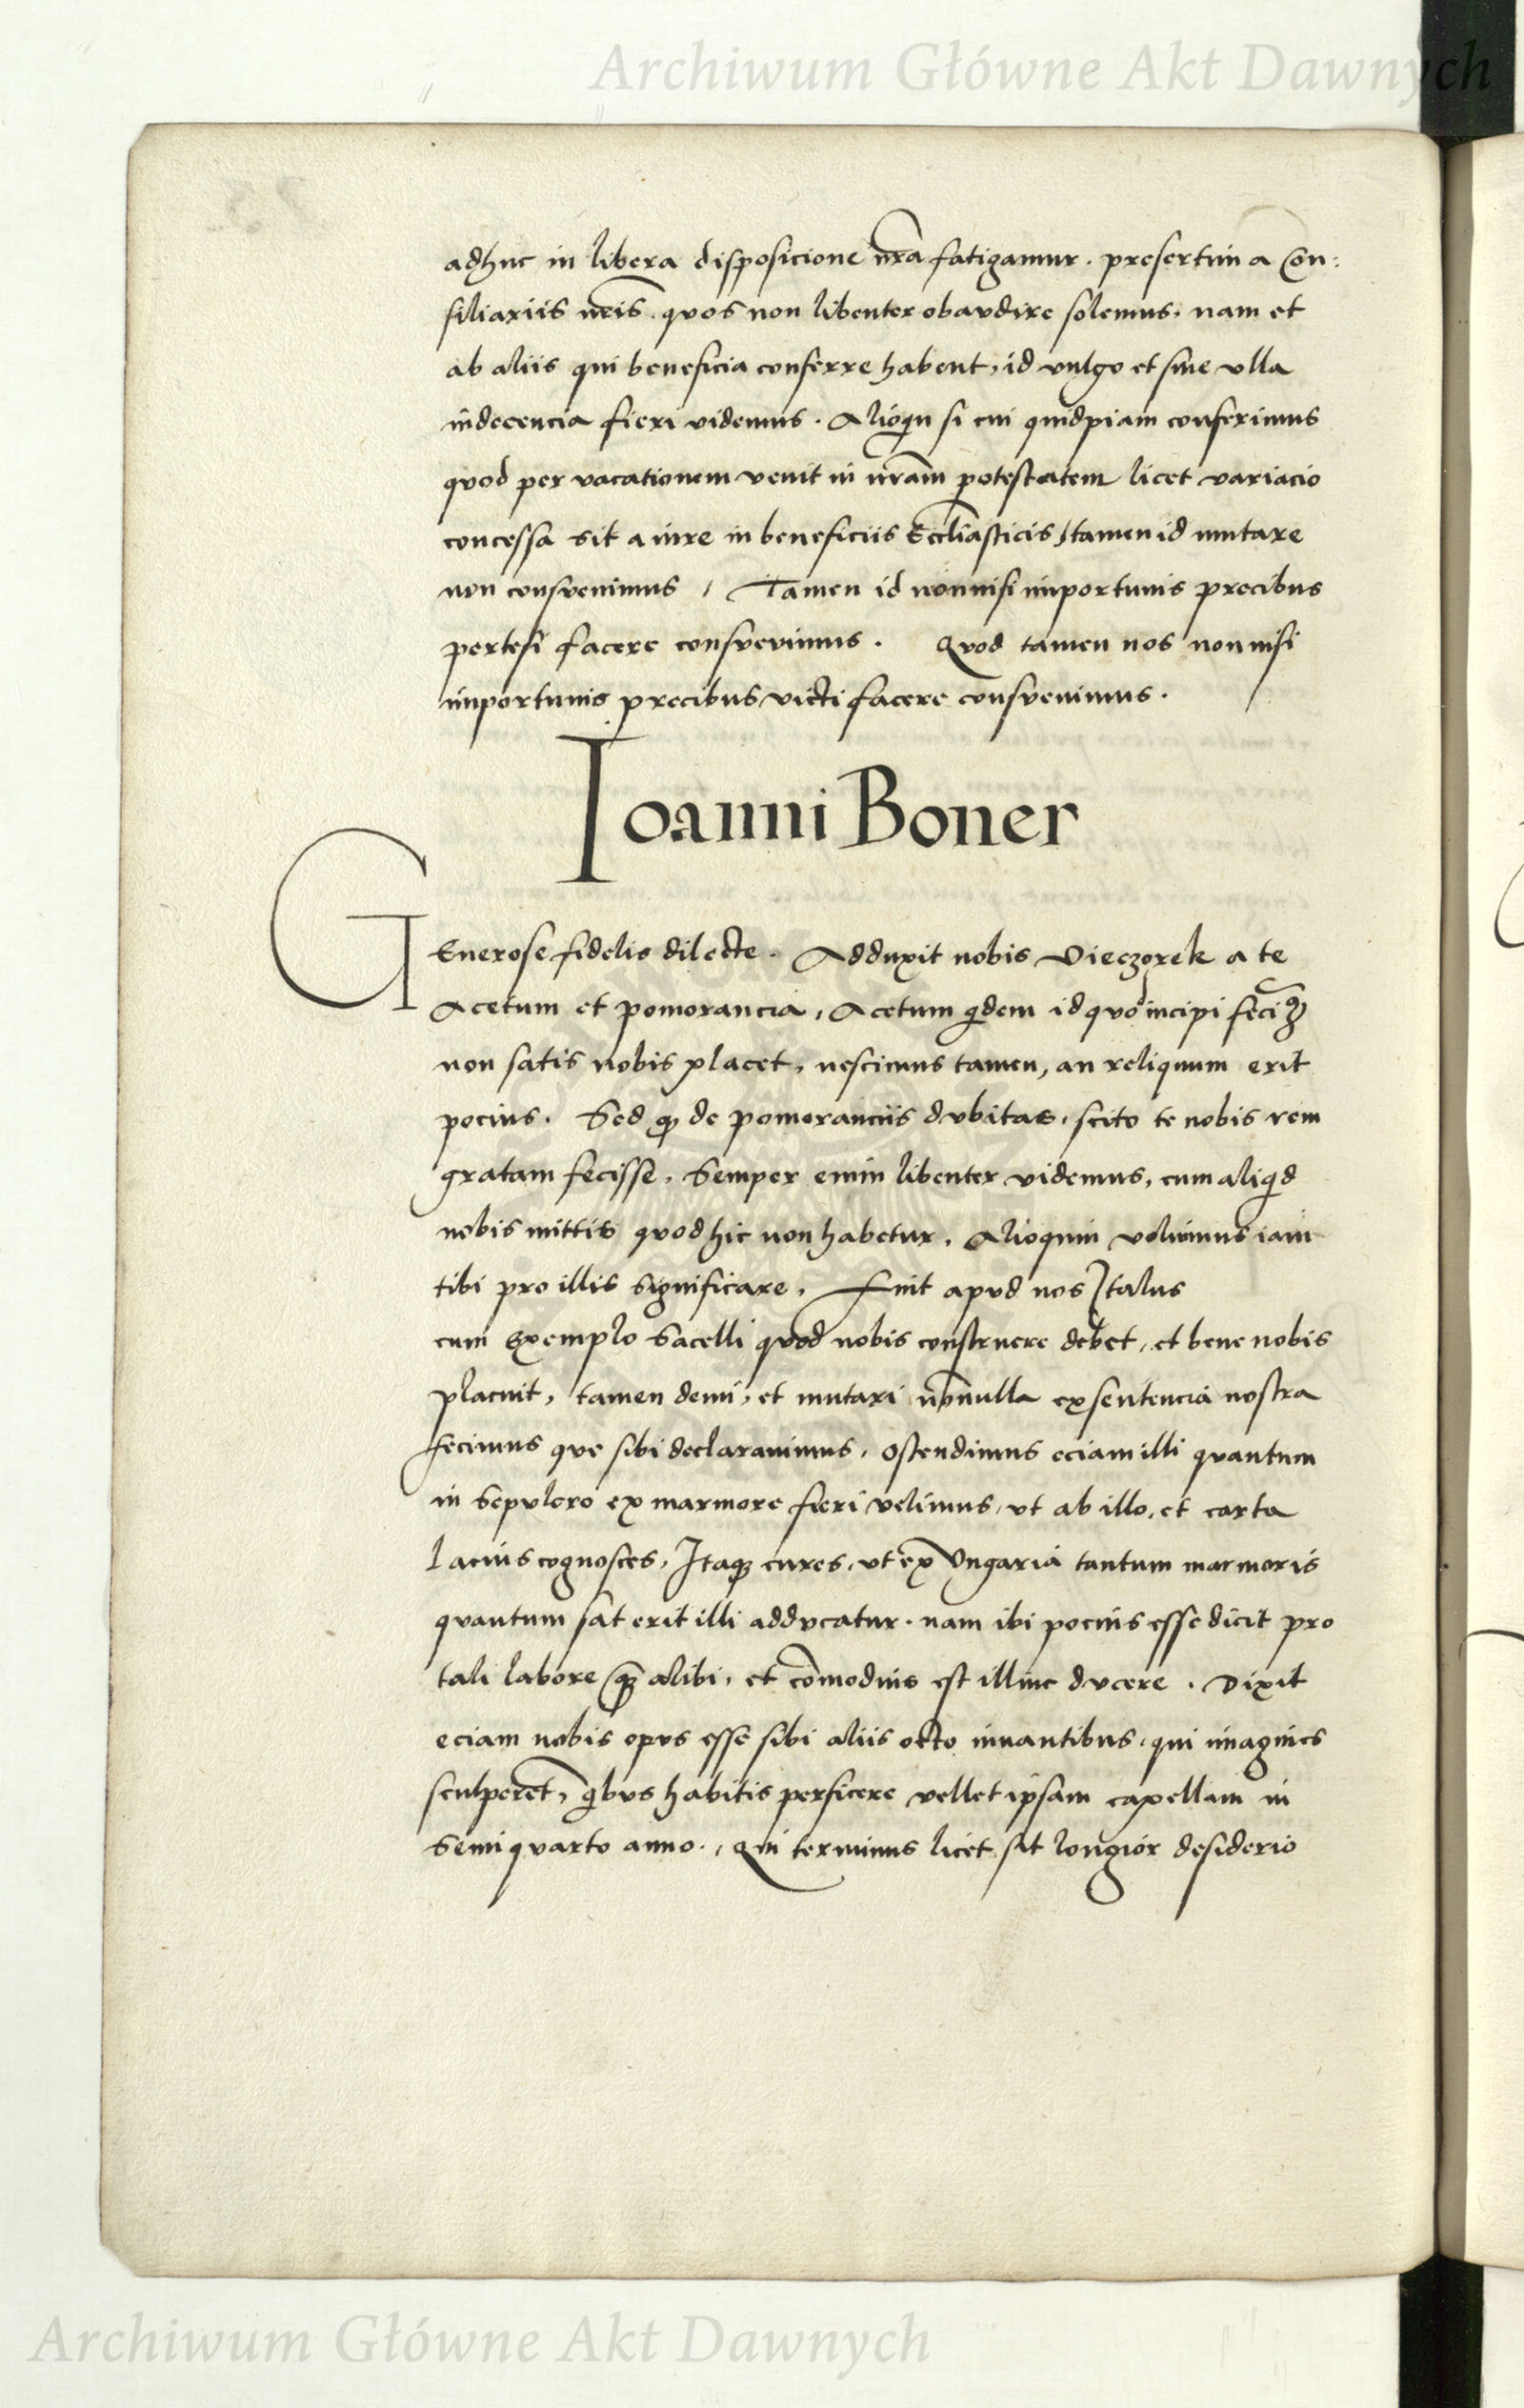 Archiwum Główne Akt Dawnych
adhuc in libera disposicione nr̃a fatigamur. presertim a Con:
siliariis nr̃is. quos non libenter obaudire solemus, nam et
ab aliis qui beneficia conferre habent, id vulgo et sine vlla
indecencia fieri videmus. Alioqn si cui quidpiam conferimus
quod per vacationem venit in nr̃am potestatem licet variacio
concessa sit a iure in beneficiis Eccl̃iasticis, tamen id mutare
non consveuimus, Tamen id nonnisi importunis precibus
pertesi facere consveuimus. Quod tamen nos nonnisi
importunis precibus victi facere consveuimus.
Ioanni Boner
GEnerose fidelis dilecte. Adduxit nobis Vieczorek a te
Acetum et pomorancia, Acetum qdem id quo incipi
non satis nobis placet, nescimus tamen, an reliquum erit
pocius. Sed qꝫ de pomoranciis dvbitas, scito te nobis rem
gratam fecisse, Semper enim libenter videmus, cum aliqd
nobis mittis quod hic non habetur, Alioquin voluimus iam
tibi pro illis significare, Fuit apvd nos Italus
cum Exemplo Sacelli quod nobis construere debet, et bene nobis
placuit, tamen demi, et mutari nõnulla ex sentencia nostra
fecimus que sibi declarauimus, ostendimus eciam illi quantum
in Sepulcro ex marmore fieri velimus, vt ab illo, et carta
lacius cognosces, Itaqꝫ cures, vt ex Vngaria tantum marmoris
quantum sat erit illi addvcatur. nam ibi pocius esse dicit pro
tali labore qꝫ alibi, et cõmodius est illinc dvcere. Dixit
eciam nobis opvs esse sibi aliis octo iuuantibus, qui imagines
sculperẽt, qbvs habitis perficere vellet ipsam capellam in
Semiquarto anno., Qui terminus licet sit longior desiderio
Archiwum Główne Akt Dawnych